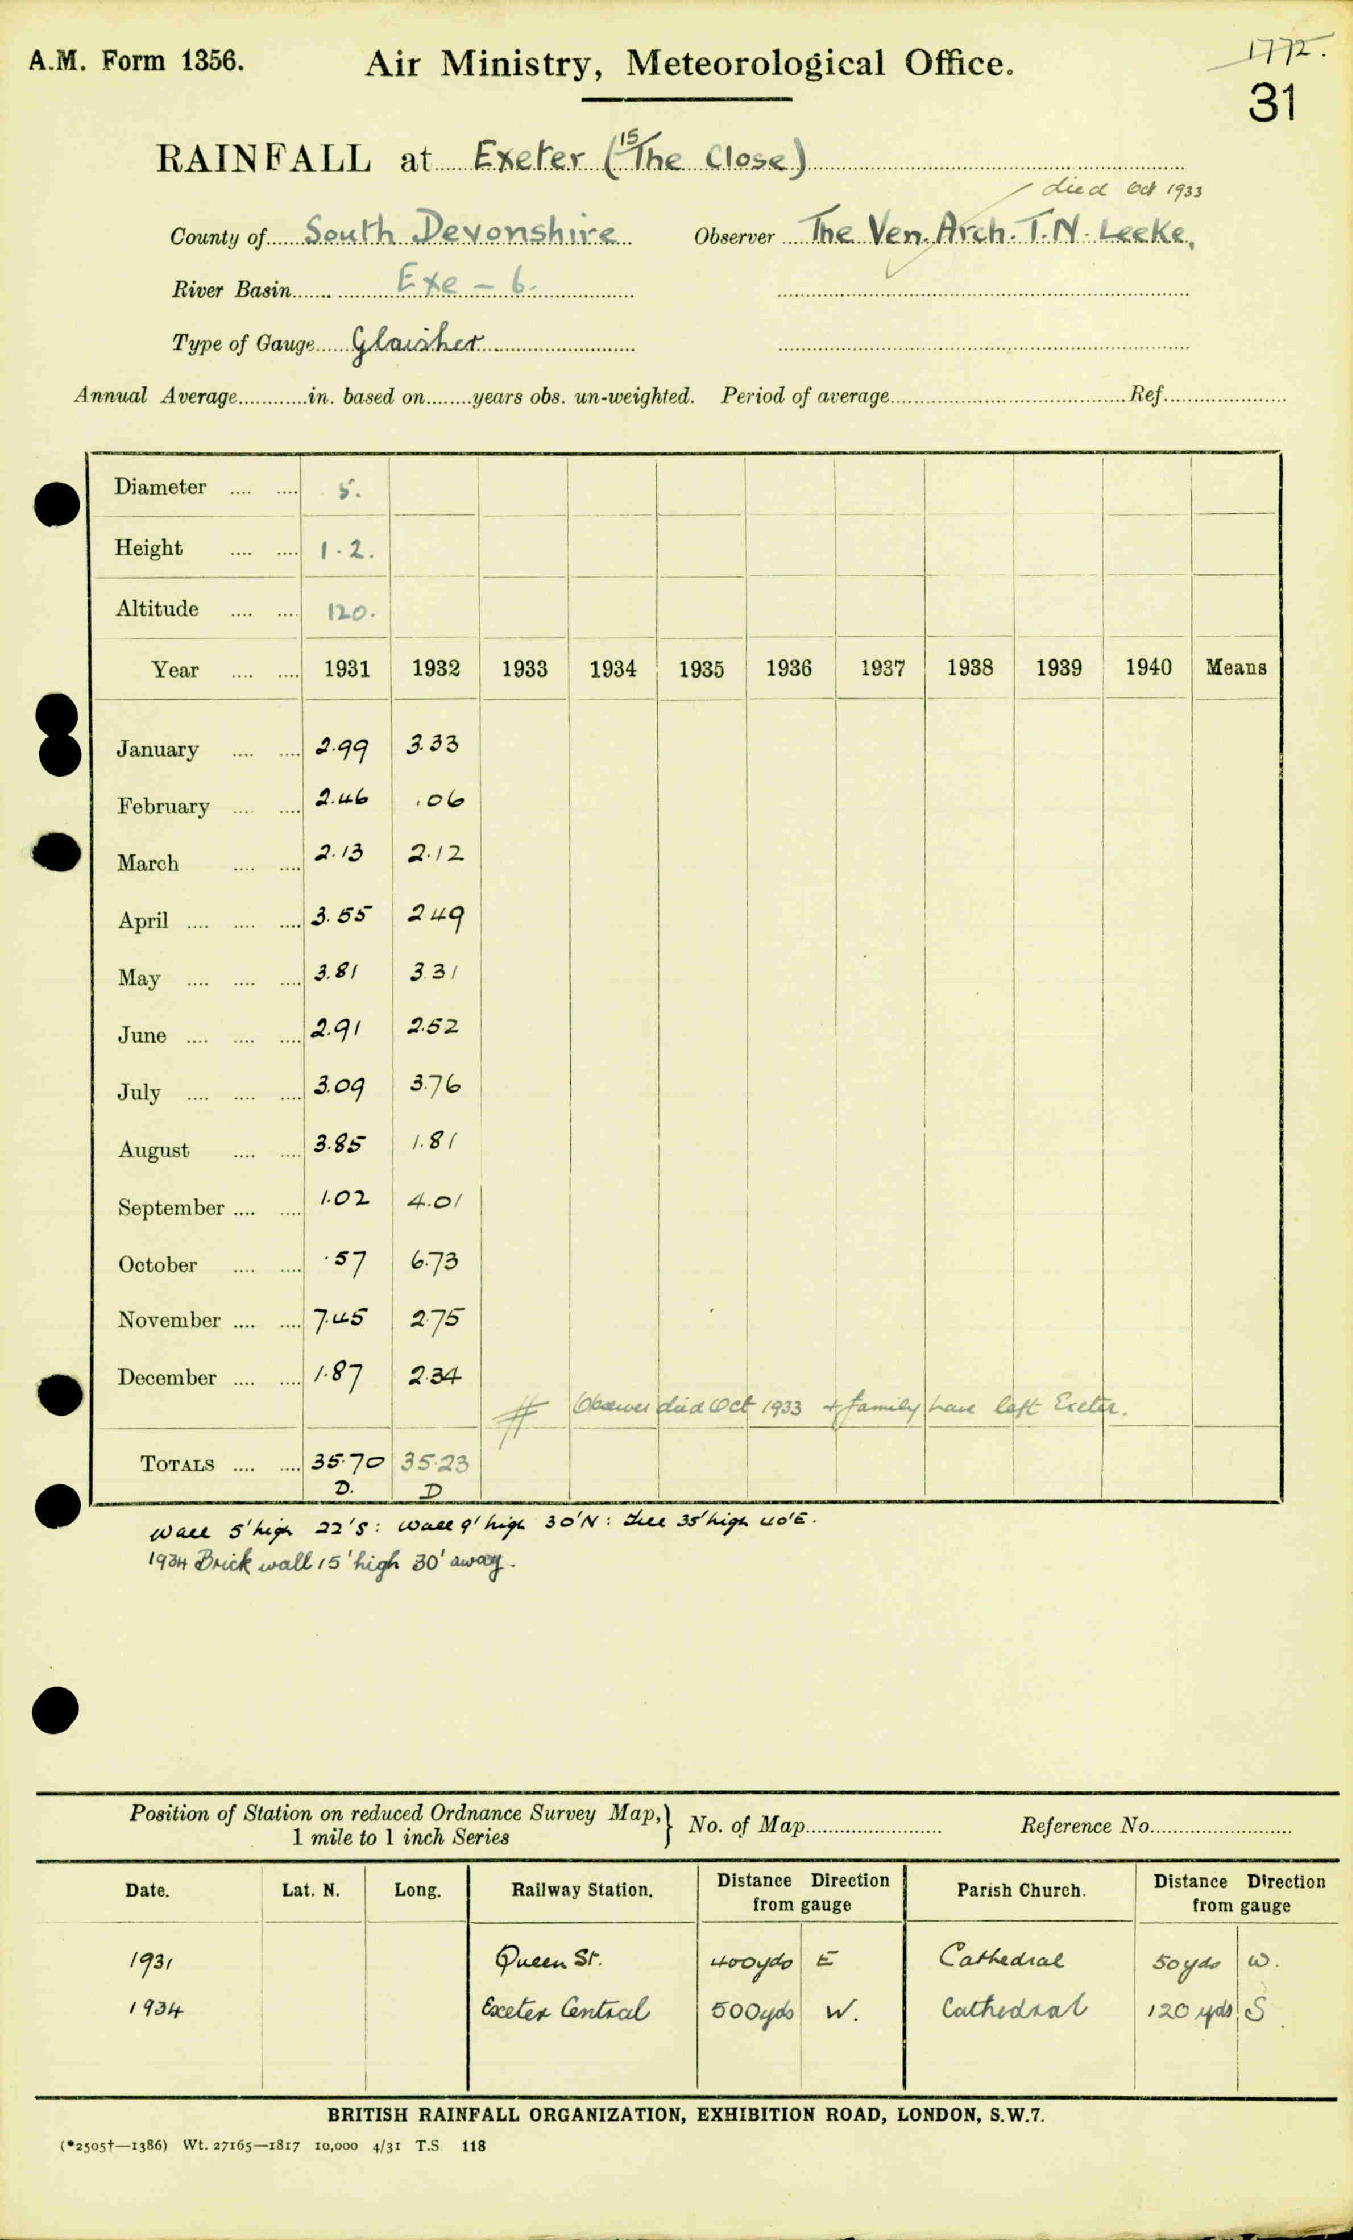 A.M. Form 1356.
Air Ministry, Meteorological Office.
1772.
31
RAINFALL at Exeter (15 The Close)
died Oct 1933
County of South Devonshire Observer The Ven. Arch. T.N. Leeke,
River Basin Exe - 6.
Type of Gauge Glaisher
Annual Average in. based on years obs. un-weighted. Period of average Ref.
Diameter 5.
Height 1.2.
Altitude 120.
Year 1931 1932 1933 1934 1935 1936 1937 1938 1939 1940 Means
January 2.99 3.33
February 2.46 .06
March 2.13 2.12
April 3.55 2 49
May 3.81 3 31
June 2.91 2.52
July 3.09 3.76
August 3.85 1.81
September 1.02 4.01
October .57 6.73
November 7.45 2.75
December 1.87 2.34
# Observer died Oct 1933 + family have left Exeter.
TOTALS 35.70 35.23
D. D
Wall 5' high 22'S: Wall 9' high 30'N: Tree 35' high 40'E.
1934 Brick wall 15' high 30' away.
Position of Station on reduced Ordnance Survey Map, 1 mile to 1 inch Series } No. of Map Reference No.
Date. Lat. N. Long. Railway Station. Distance Direction from gauge Parish Church. Distance Direction from gauge
1931 Queen St. 400yds E Cathedral 50yds W.
1934 Exeter Central 500yds W. Cathedral 120 yds S
BRITISH RAINFALL ORGANIZATION, EXHIBITION ROAD, LONDON, S.W.7.
(*2505†—1386) Wt. 27165—1817 10,000 4/31 T.S. 118